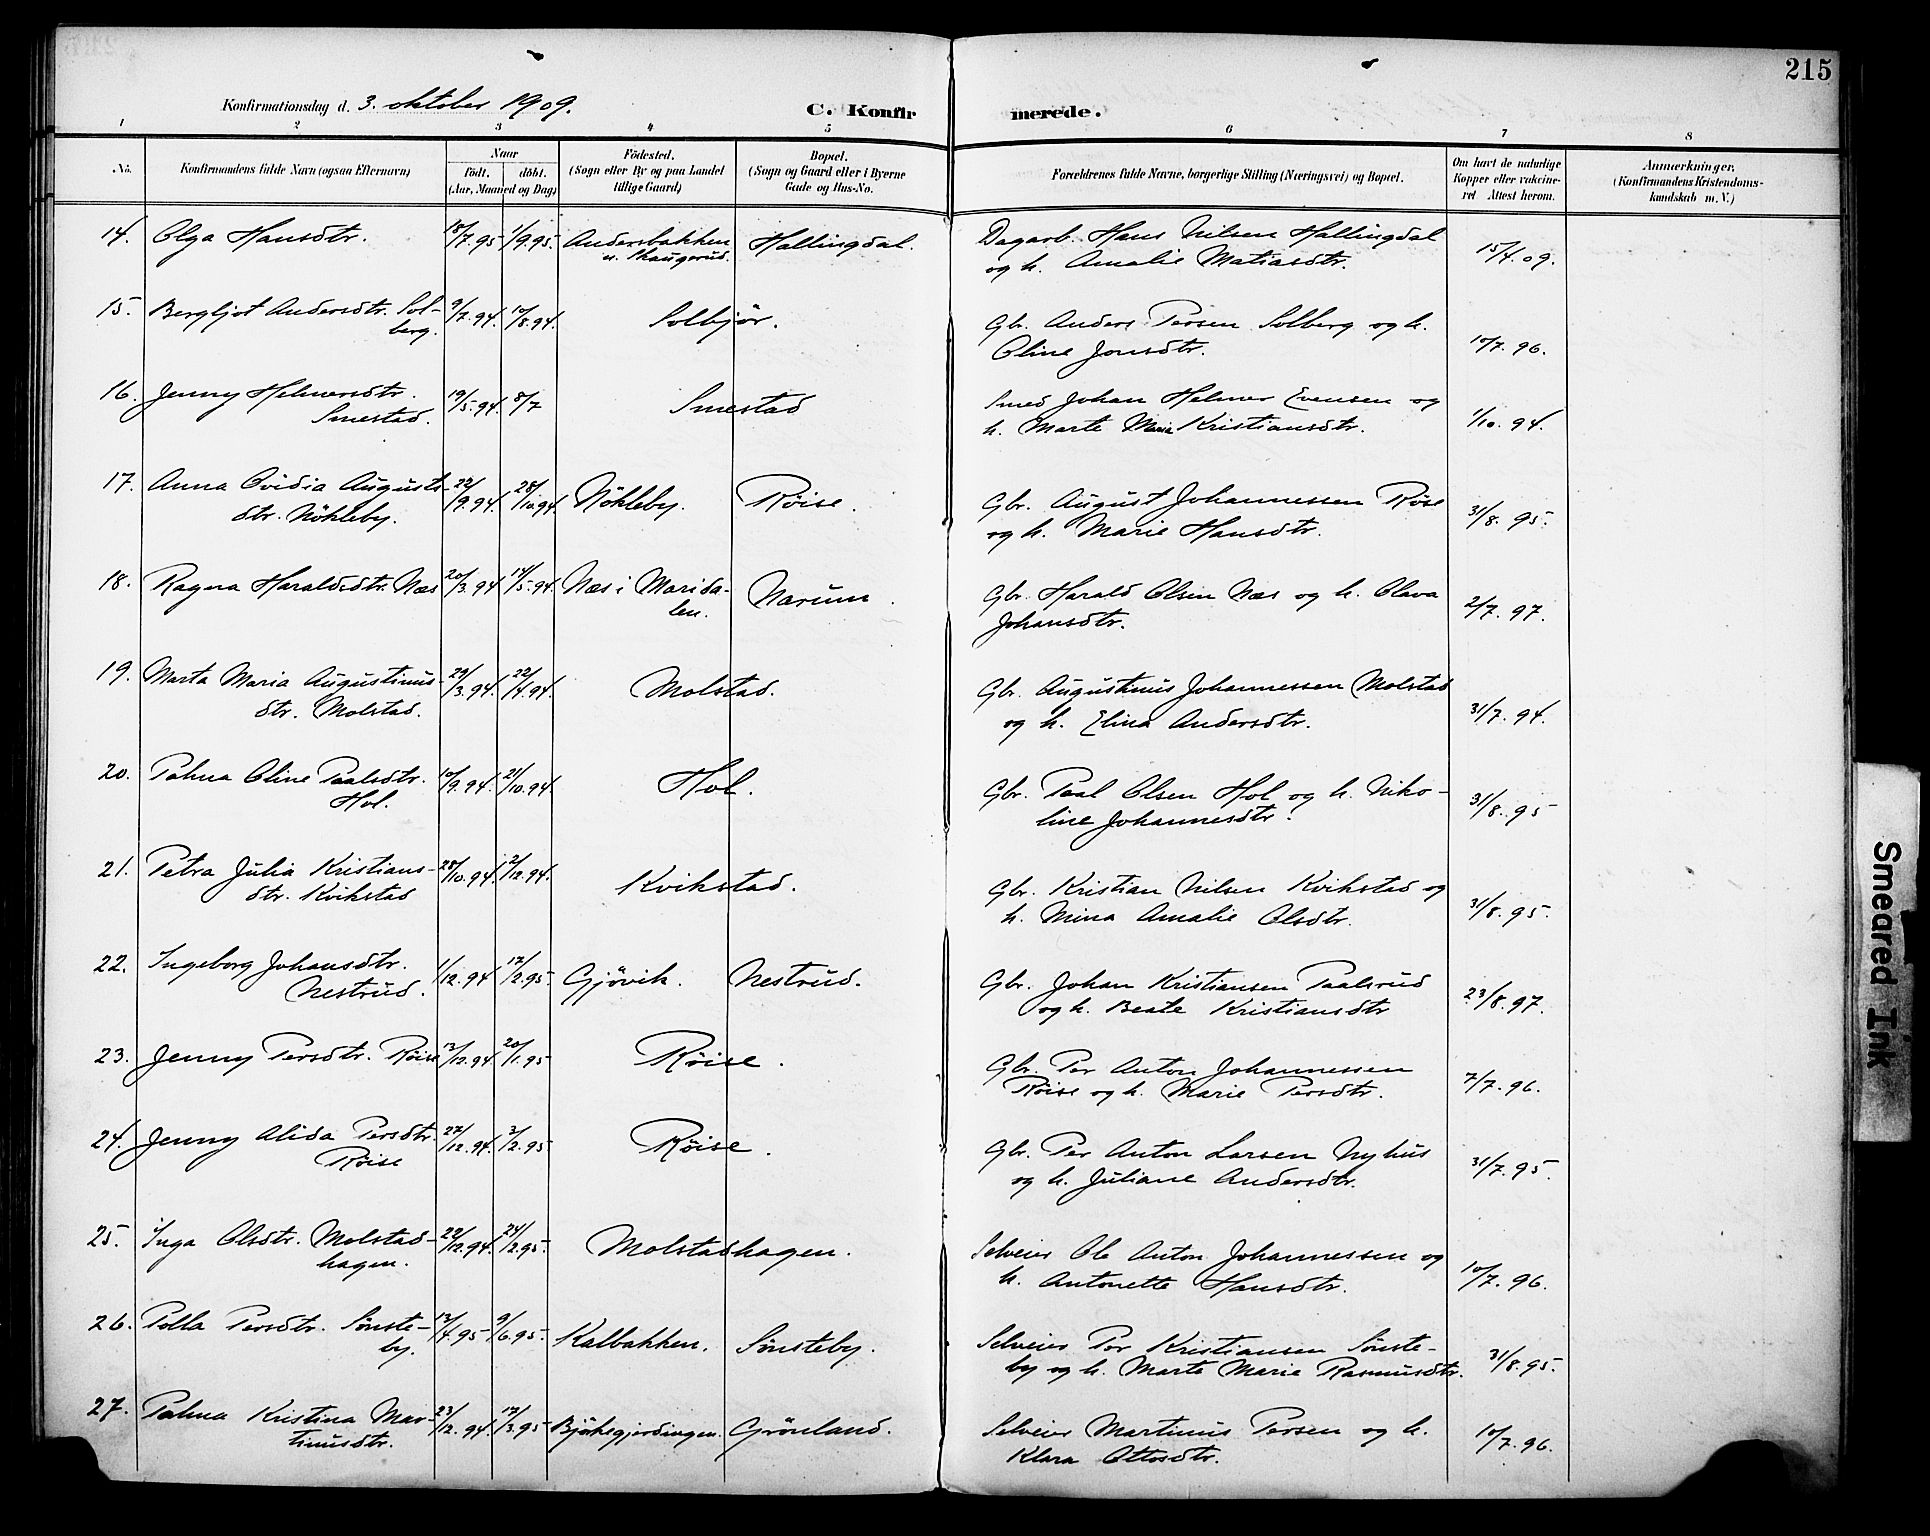 215
Konfirmationsdag d. 3. oktober 1909.
C. Konfirmerede.
1 2 3 4 5 6 7 8
No. Konfirmandens fulde Navn (ogsaa Efternavn) Naar födt. döbt. (Aar, Maaned og Dag) Födested. (Sogn eller By og paa Landet tillige Gaard) Bopæl. (Sogn og Gaard eller i Byerne Gade og Hus-No. Forældrenes fulde Navne, borgerlige Stilling (Næringsvei) og Bopæl. Om havt de naturlige Kopper eller vakcineret Attest herom. Anmerkninger. (Konfirmandens Kristendomskundskab m. V.)
14. Olga Hansdtr. 18/7.95 1/9.95. Andersbakken Hallingdal. Dagarb. Hans Nilsen Hallingdal 15/4.09.
u. Skaugerud. og h. Amalie Matiasdtr.
15. Bergljot Andersdtr. Sol- 9/7.94. 12/8.94. Solbjör. Gbr. Anders Persen Solberg og h. 10/7.96.
berg. Oline Jonsdtr.
16. Jenny Helmersdtr. 19/5.94. 8/7 Smestad Smed Johan Helmer Evensen og 1/10.94.
Smestad. h. Marte Maria Kristiansdtr.
17. Anna Ovidia Augusts- 22/9.94. 28/10.94. Nökleby. Röise. Gbr. August Johannessen Röise 31/8.95.
dtr. Nökleby. og h. Marie Hansdtr.
18. Ragna Haraldsdtr. Næs 20/3.94 14/5.94. Næs i Marida- Narum. Gbr. Harald Olsen Næs og h. Olava 2/7.97.
len. Johansdtr.
19. Marta Maria Augustinus- 29/3.94. 22/4.94. Molstad. Gbr. Augustinus Johannessen Molstad 31/7.94.
dtr. Molstad. og h. Elina Andersdtr.
20. Palma Oline Paalsdtr. 10/9.94. 21/10.94. Hol. Gbr. Paal Olsen Hol og h. Niko- 31/8.95
Hol. line Johannesdtr.
21. Petra Julia Kristians- 28/10.94. 2/12.94. Kvikstad. Gbr. Kristian Nilsen Kvikstad og 31/8.95.
dtr. Kvikstad h. Mina Amalie Olsdtr.
22. Ingeborg Johansdtr. 1/12.94 17/2.95. Gjövik. Nestrud. Gbr. Johan Kristiansen Paalsrud 23/8.97.
Nestrud. og h. Beate Kristiansdtr
23. Jenny Persdtr. Röise 13/12.94 20/1.95 Röise. Gbr. Per Anton Johannessen 7/7.96.
Röise og h. Marie Persdtr.
24. Jenny Alida Persdtr. 27/12.94. 3/2.95 Röise. Gbr. Per Anton Larsen Nyhus 31/7.95.
Röise og h. Juliane Andersdtr.
25. Inga Olsdtr. Molstad- 22/12.94. 24/2.95. Molstadhagen. Selveier Ole Anton Johannessen og 10/7.96.
hagen. h. Antonette Hansdtr.
26. Pella Persdtr. Sönste- 13/4.95 9/6.95. Kalbakken. Sönsteby. Selveier Per Kristiansen Sönste- 31/8.95.
by. by og h. Marte Marie Rasmusdtr.
27. Palma Kristina Mar- 23/12.94. 17/3.95 Björkegjerdingen. Grönland. Selveier Martinus Persen og h. 10/7.96.
tinusdtr. Klara Ottosdtr.
Smeared Ink